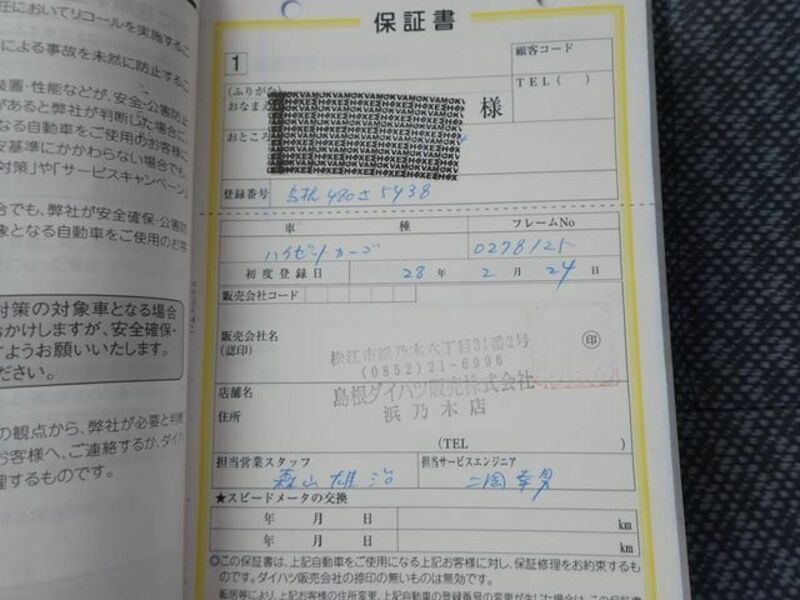 任においてリコールを実施するこ
による事故を未然に防止するこ
装置・性能などが、安全・公害防止
があると弊社が判断した場合に、
なる自動車をご使用のお客様に
安基準にかかわらない場合でも
対策」や「サービスキャンペーン」
合でも、弊社が安全確保・公害防
象となる自動車をご使用のお客
対策の対象車となる場合
おかけしますが、安全確保・
すようお願いいたします。
ださい。
の観点から、弊社が必要と判断
お客様へ、ご連絡するか、ダイハ
理するものです。
保証書
1
顧客コード
TEL( )
(ふりがな)
おなまえ
様
おところ
登録番号 島根 480 さ 5438
車種 フレームNo
ハイゼットカーゴ 0278125
初度登録日 28年 2月 24日
販売会社コード
販売会社名
(認印)
印
松江市浜乃木六丁目31番2号
(0852)21-6996
島根ダイハツ販売株式会社
浜乃木店
店舗名
住所
(TEL )
担当営業スタッフ 担当サービスエンジニア
森山雄治 二岡幸男
★スピードメータの交換
年 月 日 km
年 月 日 km
◎この保証書は、上記自動車をご使用になる上記お客様に対し、保証修理をお約束するも
のです。ダイハツ販売会社の捺印の無いものは無効です。
転居等により、上記お客様の住所変更、上記自動車の登録番号の変更が生じた場合は、この保証書